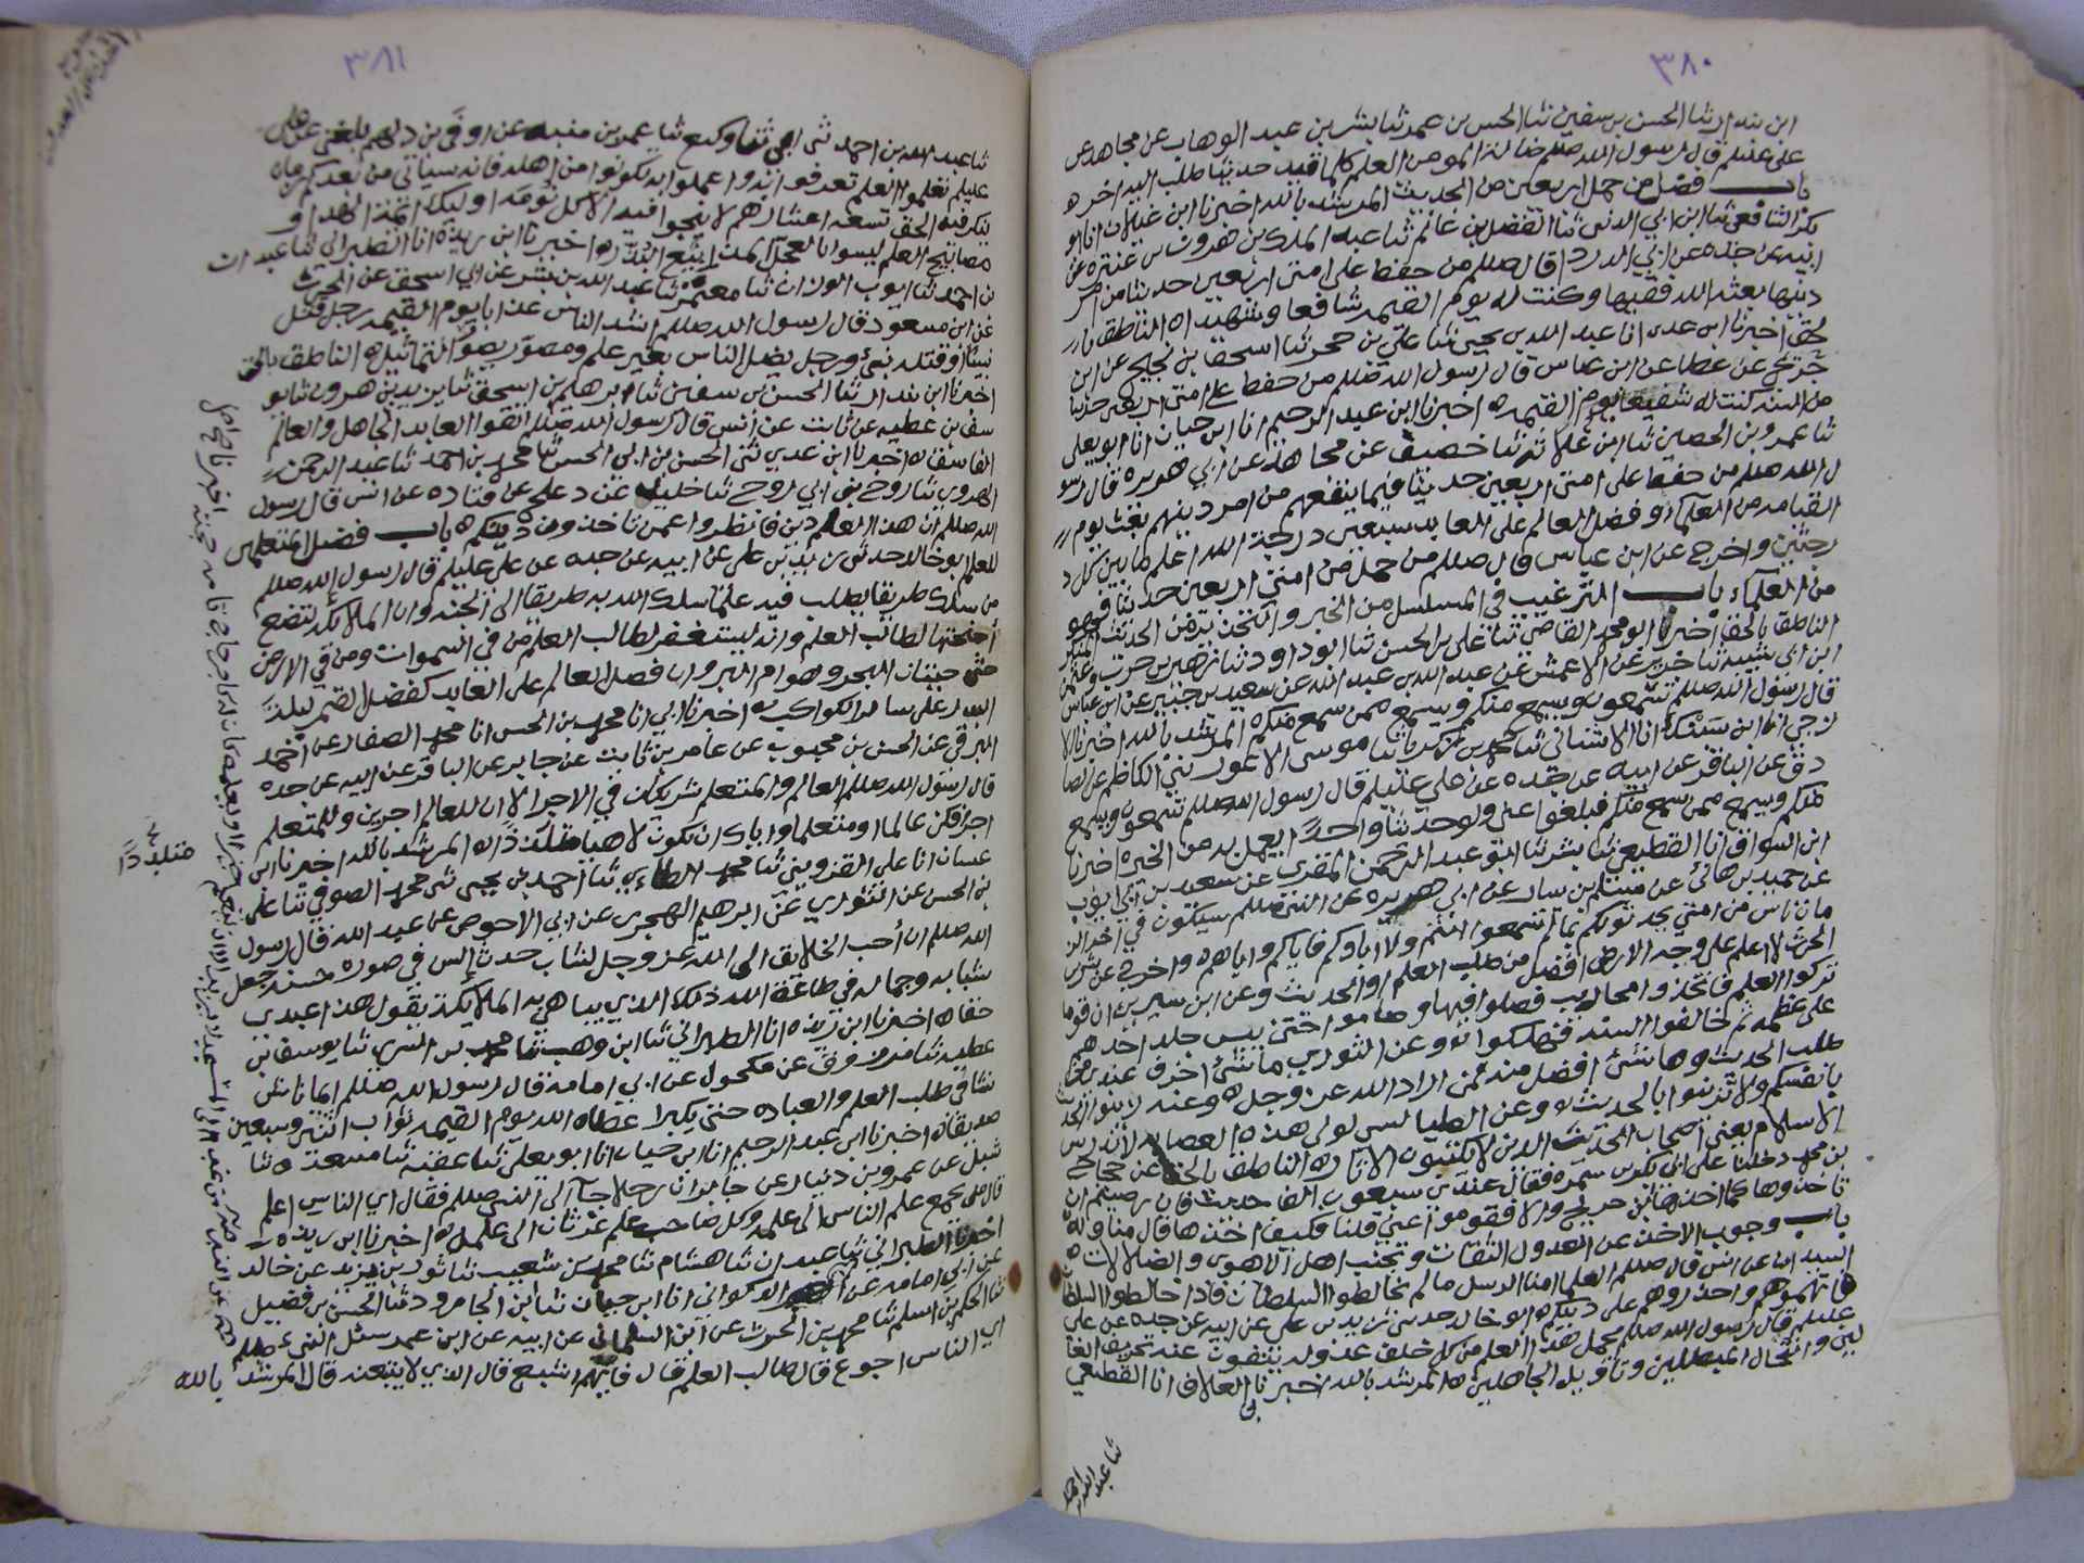 ٣٨٠
ابن بندار ثنا الحسن بن سفين ثنا الحسن بن عمر ثنا بشر بن عبد الوهاب عن مجاهد عن
علي عليلم قال رسول الله صللم ضالة المومن العلم كلما قيد حديثا طلب اليه اخره
باب فضل من حمل اربعين من الحديث المرشد بالله اخبرنا ابن غيلان انا ابو
بكر الشافعي ثنا ابن ابي الدنيا ثنا الفضل بن غانم ثنا عبد الملك بن هرون بن عنتره عن
ابيه عن جده عن ابي الدردا قال صللم من حفظ على امتي اربعين حديثا من امر
دينها بعثه الله فقيها وكنت له يوم القيمه شافعا وشهيدا ه الناطق با
لحق اخبرنا ابن عدي انا عبد الله بن يحيى ثنا علي بن حجر ثنا اسحق بن نجيح عن ابن
جريج عن عطا عن ابن عباس قال رسول الله صللم من حفظ على امتي اربعين حديثا
من السنه كنت له شفيعا يوم القيمه ه اخبرنا ابن عبد الرحيم انا ابن حيان انا ابو يعلى
ثنا عمرو بن الحصين ثنا ابن علاثه ثنا خصيف عن مجاهد عن ابي هريره قال رسو
ل الله صللم من حفظ على امتي اربعين حديثا فيما ينفعهم من امر دينهم بعث يوم
القيامه من العلماء وفضل العالم على العابد سبعين درجة الله اعلم ما بين كل د
رجتين واخرج عن ابن عباس قال صللم من حمل من امتي اربعين حديثا فهو
من العلماء باب الترغيب في المسلسل من الخبر والتحذير من الحديث المنكر
الناطق بالحق اخبرنا ابو محمد القاضي ثنا علي بن الحسن ثنا ابو داود ثنا زهير بن حرب وعثمن
ابن ابي شيبه ثنا جرير عن الاعمش عن عبد الله بن عبد الله عن سعيد بن جبير عن ابن عباس
قال رسول الله صللم تسمعون ويسمع منكم ويسمع ممن سمع منكم ه المرشد بالله اخبرنا الا
زجي انا ابن سنبك انا الاشناني ثنا محمد بن زكريا ثنا موسى الاعمور بني الكاظم عن الصا
دق عن الباقر عن ابيه عن جده عن علي عليلم قال رسول الله صللم تسمعون ويسمع
منكم ويسمع ممن سمع منكم فبلغوا عني ولو حديثا واحدًا يعمل به من الخير ه اخبرنا
ابن السواق انا القطيعي ثنا بشر ثنا ابو عبد الرحمن المقري عن سعيد بن ابي ايوب
عن حميد بن هاني عن مسلم بن يسار عن ابي هريره عن النبي صللم سيكون في اخر الز
مان ناس من امتي يحدثونكم بما لم تسمعوا انتم ولا اباوكم فاياكم واياهم ه واخرج عن بشر بن
الحرث لا اعلم على وجه الارض افضل من طلب العلم او الحديث وعن ابن سيرين ان قوما
تركوا العلم فاتخذوا محاريب فصلوا فيها وصاموا حتى يبس جلد احدهم
على عظمه ثم خالفوا السنه فهلكوا ه وعن الثوري ما شئ اخوف عندي من
طلب الحديث وما شئ افضل منه لمن اراد الله عز وجل ه وعنه زينوا الحديث
بانفسكم ولا تزينوا بالحديث ه وعن الطيالسي لولا هذه العصابه لاندرس
الاسلام يعني اصحاب الحديث الذين يكتبون الاثار ه الناطق بالحق عن حجاج
بن محمد دخلنا على ابي بكر بن سمره فقال عندي سبعون الف حديث فان رضيتم ان
تاخذوها كما اخذها ابن جريج والا فقوموا عني قلنا فكيف اخذها قال مناوله ه
باب وجوب الاخذ عن العدول الثقات وتجنب اهل الاهوى والضلالات ه
السيد ابن عن انس قال صللم العلما امنا الرسل مالم يخالطوا السلطان فاذا خالطوا السلطان
فاتهموهم واحذروهم على دينكم ه ابو خالد حدثني زيد بن علي عن ابيه عن جده عن علي
عليلم قال رسول الله صللم يحمل هذا العلم من كل خلف عدوله ينفون عنه تحريف الغا
لين وانتحال المبطلين وتاويل الجاهلين ه المرشد بالله اخبرنا العلاف انا القطيعي
ثنا عبد الله بن احمد
٣٨١
ثنا عبد الله بن احمد ثني ابي ثنا وكيع ثنا عمر بن منبه عن اوفى بن دلهم بلغني عن علي
عليلم تعلموا العلم تعرفوا به واعملوا به تكونوا من اهله فانه سياتي من بعدكم زمان
ينكر فيه الحق تسعه اعشارهم لا ينجوا فيه الا كل نومه اوليك ائمة الهدى و
مصابيح العلم ليسوا بالعجل المذاييع البذر ه اخبرنا ابن ريذه انا الطبراني ثنا عبدان
بن احمد ثنا ايوب الوزان ثنا معتمر ثنا عبد الله بن بشر عن ابي اسحق عن الحرث
عن ابن مسعود قال رسول الله صللم اشد الناس عذابا يوم القيمه رجل قتل
نبيًا او قتله نبي ورجل يضل الناس بغير علم ومصوّر يصوّر التماثيل ه الناطق بالحق
اخبرنا ابن بندار ثنا الحسن بن سفين ثنا ابرهيم بن اسحق ثنا يزيد بن هرون ثنا يو
سف بن عطيه عن ثابت عن انس قال رسول الله صللم اتقوا العابد الجاهل والعالم
الفاسق ه اخبرنا ابن عدي ثني الحسن بن ابي الحسن ثنا محمد بن احمد ثنا عبد الرحمن
الهروي ثنا روح بني ابي روح ثنا خليل عن دعلج عن قتاده عن انس قال رسول
الله صللم ان هذا العلم دين فانظروا عمن تاخذون دينكم ه باب فضل المتعلمين
للعلم ابو خالد حدثني زيد بن علي عن ابيه عن جده عن علي عليلم قال رسول الله صللم
من سلك طريقا يطلب فيه علمًا سلك الله به طريقًا الى الجنه وان الملائكه لتضع
أجنحتها لطالب العلم وانه ليستغفر لطالب العلم من في السموات ومن في الارض
حتى حيتان البحر وهوام البر وان فضل العالم على العابد كفضل القمر ليلة
البدر على ساير الكواكب ه اخبرنا ابي انا محمد بن الحسن انا محمد الصفار عن احمد
البرقي عن الحسن بن محبوب عن عامر بن ثابت عن جابر عن الباقر عن ابيه عن جده
قال رسول الله صللم العالم والمتعلم شريكان في الاجر الا ان للعالم اجرين وللمتعلم
اجر فكن عالما او متعلما واياك ان تكون لاهيا متلذذًا ه المرشد بالله اخبرنا ابن
غسان انا علي القزويني ثنا محمد الطاءي ثنا احمد بن يحيى ثني محمد الصوفي ثنا علي
بن الحسن عن الثوري عن ابرهيم الهجري عن ابي الاحوص عن عبد الله قال رسول
الله صللم ان أحب الخلائق الى الله عز وجل لشاب حدث السن في صورة حسنه جعل
شبابه وجماله في طاعة الله ذلك الذي يباهي به الملايكة يقول هذا عبدي
حقا ه اخبرنا ابن ريذه انا الطبراني ثنا ابن وهب ثنا محمد بن السري ثنا يوسف بن
عطيه ثنا مرزوق عن مكحول عن ابي امامه قال رسول الله صللم ايما ناشئ
نشا في طلب العلم والعباده حتى يكبر اعطاه الله يوم القيمه ثواب اثنين وسبعين
صديقا ه اخبرنا ابن عبد الرحيم انا ابن حيان انا ابو يعلى ثنا عقبه ثنا مسعده ثنا
شبل عن عمرو بن دينار عن جابر ان رجلا جاء الى النبي صللم فقال اي الناس اعلم
قال من يجمع علم الناس الى علمه وكل صاحب علم غرثان الى علم ه اخبرنا ابن ريذه
اخبرنا الطبراني ثنا عبدان ثنا هشام ثنا محمد بن شعيب ثنا ثور بن يزيد عن خالد
عن ابي امامه عن الذكواني انا ابن حيان ثنا ابن الجارود ثنا الحسن بن فضيل
ثنا الحكم بن اسلم ثنا محمد بن الحرث عن ابن السلماني عن ابيه عن ابن عمر سئل النبي صللم
اي الناس اجوع قال طالب العلم قال فايهم اشبع قال الذي لا يبتغيه قال المرشد
بالله
متلذذًا